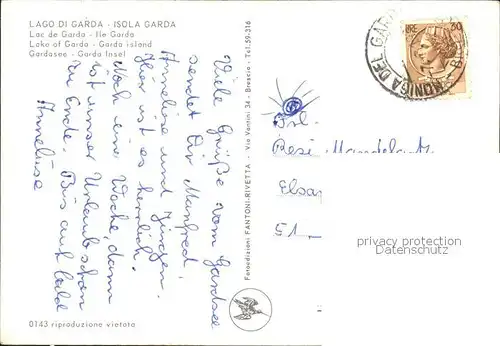 LAGO DI GARDA - ISOLA GARDA
Lac de Garda - Ile Garda
Lake of Garda - Garda island
Gardasee - Garda Insel
Viele Grüße vom Gardsee
sendet Dir Manfred,
Anneliese und Jürgen.
Hier ist es herrlich.
Noch eine Woche, dann
ist unser Urlaub schon
zu Ende. Bis auf bald
Anneliese
0143 riproduzione vietata
Fotoedizioni FANTONI-RIVETTA - Via Vantini 34 - Brescia - Tel. 59-316
MONIGA DEL GARD
30
Frl.
Resi Mandelart
Elsa
51-
privacy protection
Datenschutz